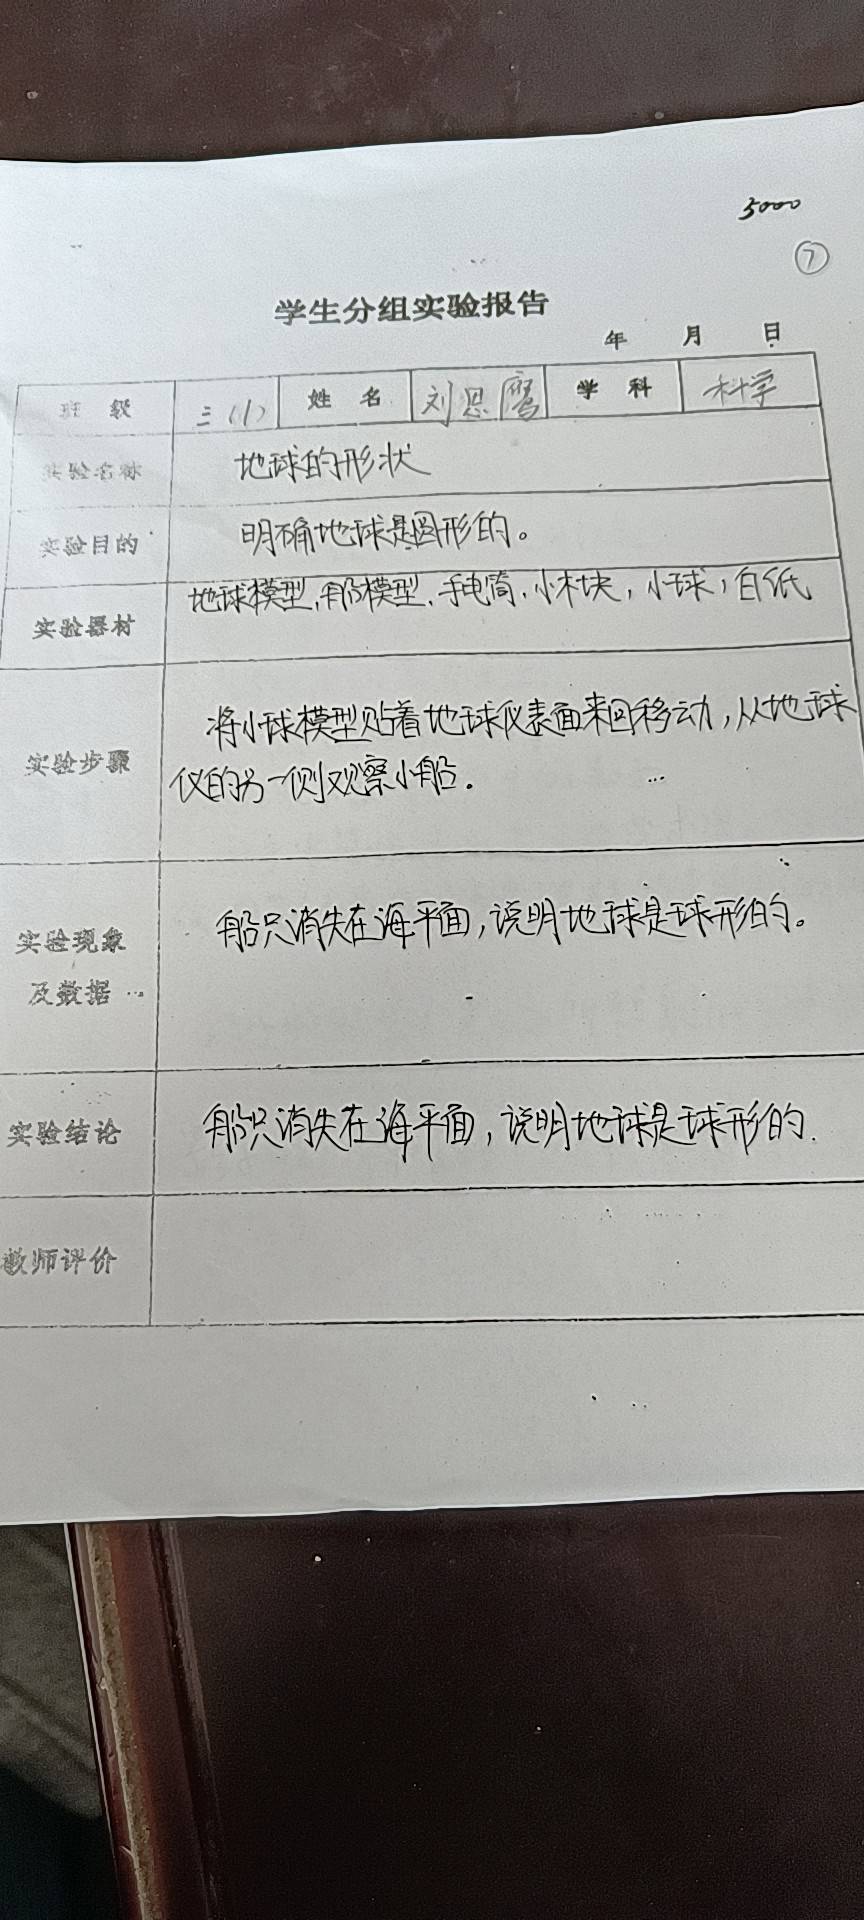 5000
⑦
学生分组实验报告
年 月 日
班级 三(1) 姓名 刘思 学科 科学
实验名称 地球的形状
实验目的 明确地球是圆形的。
实验器材 地球模型,船模型,手电筒,小木块,小球,白纸
实验步骤 将小球模型贴着地球仪表面来回移动,从地球
仪的另一侧观察小船.
实验现象 船只消失在海平面,说明地球是球形的。
及数据
实验结论 船只消失在海平面,说明地球是球形的.
教师评价